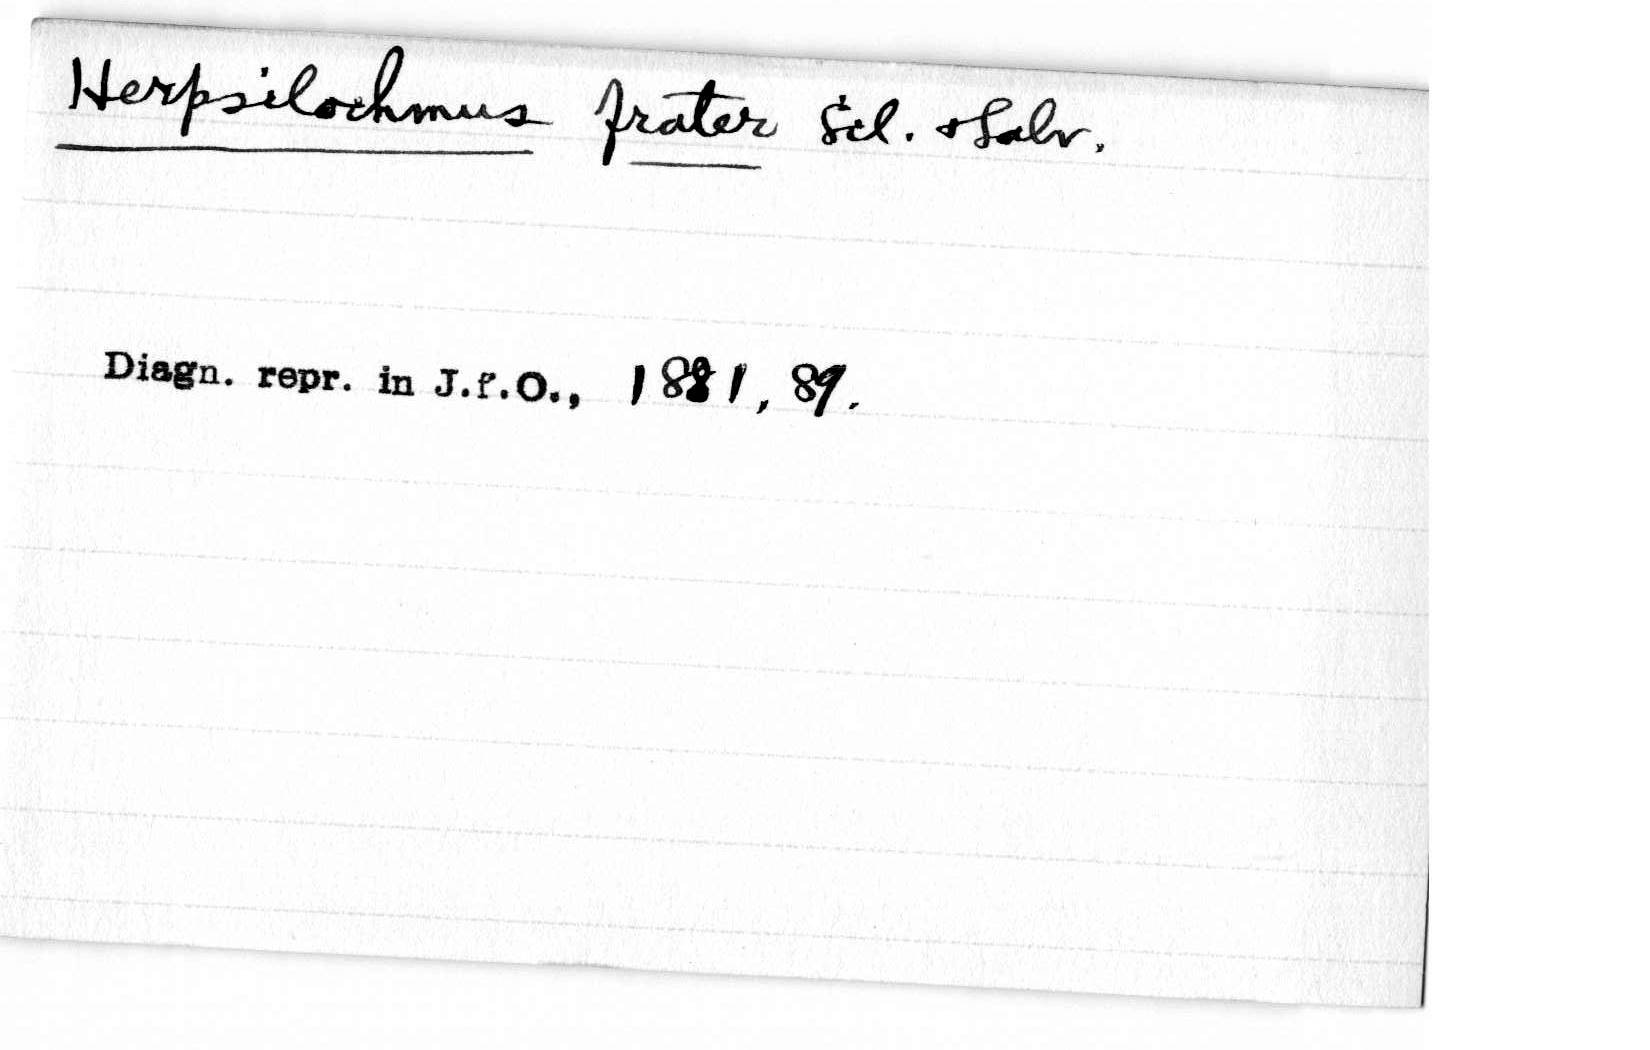 Herpsilochmus frater Scl. & Salv.
Diagn. repr. in J.f.O., 1881, 89.